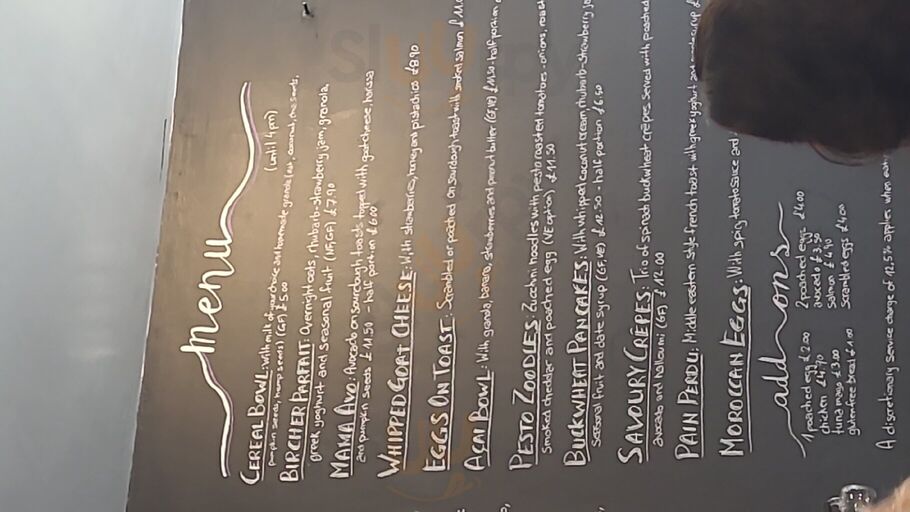 Menu
(until 4pm)
CEREAL BOWL: With milk of your choice and homemade granola (oat, coconut,
pumpkin seeds, hemp seeds) (GF) £5.00
BIRCHER PARFAIT: Overnight oats, rhubarb-strawberry jam, granola,
greek yoghurt and seasonal fruit (NF, GF) £7.90
MAMA AVO: Avocado on sourdough toasts topped with goat cheese, harissa
and pumpkin seeds £11.50 - half portion £6.00
WHIPPED GOAT CHEESE: With strawberries, honey and pistachios £8.90
EGGS ON TOAST: Scrambled or poached on sourdough toast with smoked salmon
AÇAI BOWL: With granola, banana, strawberries and peanut butter (G, VE) £11.50 - half portion
PESTO ZOODLES: Zucchini noodles with pesto roasted tomatoes, onions, roast
smoked cheddar and poached egg (VE option) £11.50
BUCKWHEAT PANCAKES: With whipped coconut cream, rhubarb-strawberry
seasonal fruit and date syrup (GF, VE) £12.50 - half portion £6.50
SAVOURY CREPES: Trio of spinach buckwheat crêpes served with poached
avocado and halloumi (GF) £12.00
PAIN PERDU: Middle eastern style french toast with greek yoghurt and syrup
MOROCCAN EGGS: With spicy tomato sauce and
add ons
1 poached egg £2.00
chicken £4.70
tuna mayo £3.00
gluten free bread £1.00
2 poached eggs £4.00
avocado £3.50
salmon £4.90
scrambled eggs £4.00
A discretionary service charge of 12.5% applies when